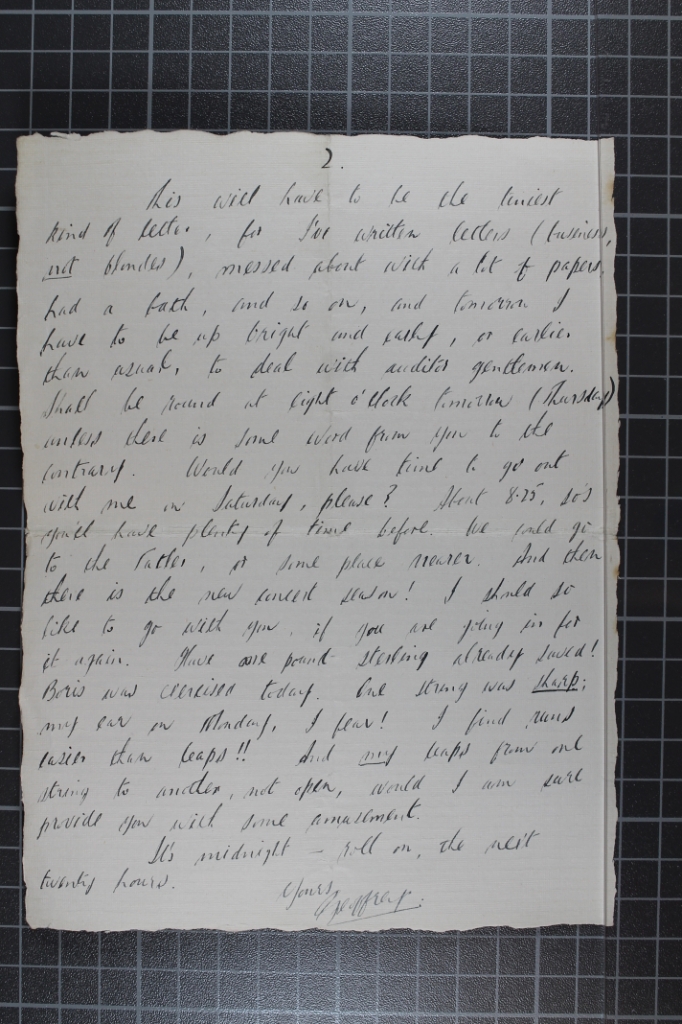 2.
This will have to be the tiniest
kind of letter, for I've written letters (business,
not blondes), messed about with a lot of papers,
had a bath, and so on, and tomorrow I
have to be up bright and early, or earlier
than usual, to deal with auditor gentlemen.
Shall be round at eight o'clock tomorrow (Thursday)
unless there is some word from you to the
contrary. Would you have time to go out
with me on Saturday, please? About 8.25, so's
you'll have plenty of time before. We could go
to the Tatler, or some place nearer. And then
there is the new concert season! I should so
like to go with you, if you are going in for
it again. Have one pound sterling already saved!
Boris was exercised today. One string was sharp;
my ear on Monday, I fear! I find runs
easier than leaps!! And my leaps from one
string to another, not open, would I am sure
provide you with some amusement.
It's midnight – roll on, the next
twenty hours.
Yours,
Geoffrey.